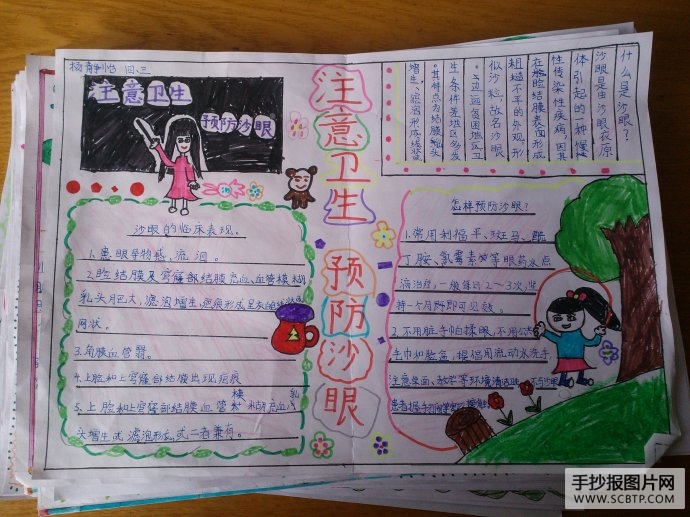 杨静怡 四、三
注意卫生
预防沙眼
注意卫生 预防沙眼
什么是沙眼?
沙眼是由沙眼衣原
体引起的一种慢
性传染性疾病,因其
在睑结膜表面形成
粗糙不平的外观,形
似沙粒,故名沙眼
。边远贫困地区卫
生条件差地区多发
。其特点为结膜乳头
增生、滤泡形成
沙眼的临床表现.
1.患眼异物感、流泪。
2.睑结膜及穹窿部结膜充血、血管模糊
乳头肥大,滤泡增生,疤痕形成呈灰白线状或
网状。
3.角膜血管翳。
4.上睑和上穹窿部结膜出现疤痕
5.上睑和上穹窿部结膜血管模糊充血,乳
头增生或滤泡形成,或二者兼有。
怎样预防沙眼?
1.常用利福平、斑马、酞
丁胺、氯霉素等眼药水点
滴治疗,一般每日2~3次,坚
持一个月所即可见效。
2.不用脏手巾揉眼,不用公共
毛巾和脸盆,提倡用流动水洗手,
注意桌面、教室等环境清洁
患者
手抄报图片网
WWW.SCBTP.COM